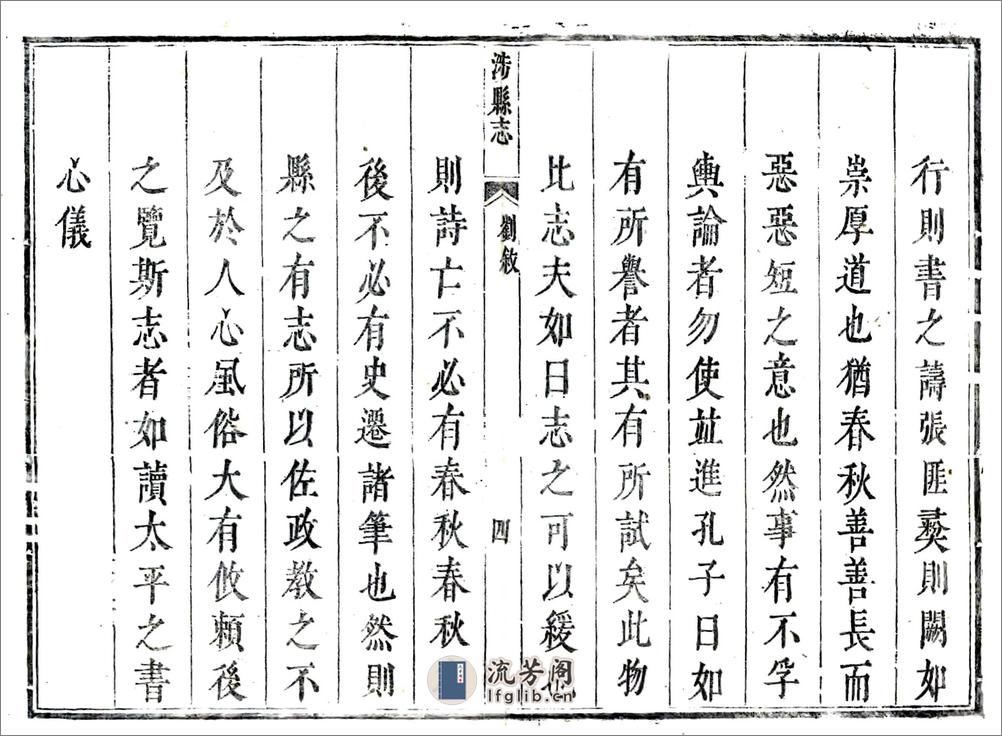 行則書之譸張匪彛則闕如
崇厚道也猶春秋善善長而
惡惡短之意也然事有不孚
輿論者勿使並進孔子曰如
有所譽者其有所試矣此物
比志夫如曰志之可以緩
涉縣志
劉敘
四
則詩亡不必有春秋春秋
後不必有史遷諸筆也然則
縣之有志所以佐政教之不
及於人心風俗大有攸賴後
之覽斯志者如讀太平之書
心儀
流芳阁
lfglib.cn